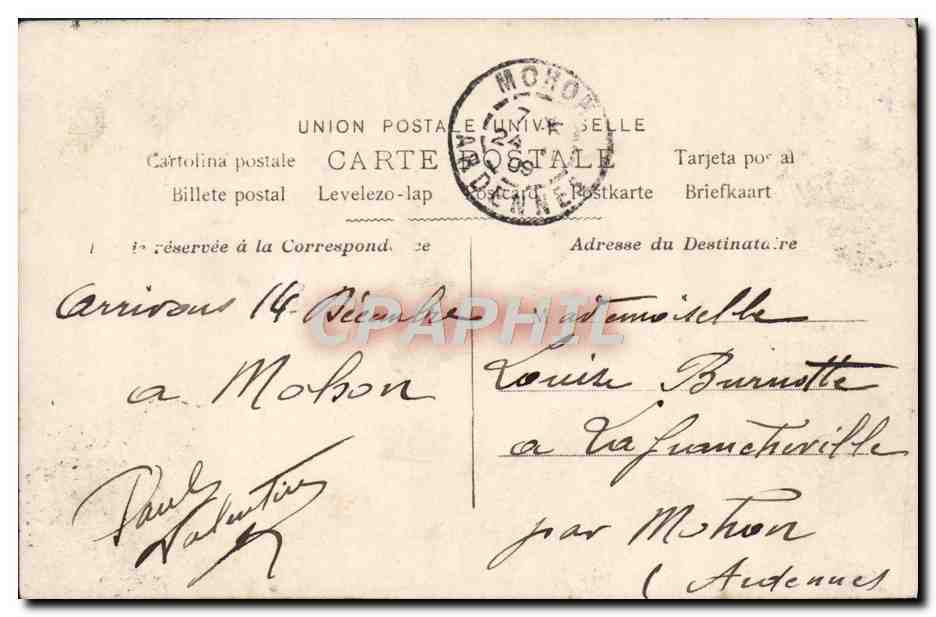 MOHON
7
24
09
ARDENNES
UNION POSTALE UNIVERSELLE
Cartolina postale CARTE POSTALE Tarjeta postal
Billete postal Levelezo-lap Postcard Postkarte Briefkaart
réservée à la Correspondance
Adresse du Destinataire
CPAPHIL
Arrivons 14 Décembre
a Mohon
Paul
Valentine
Mademoiselle
Louise Burnotte
a La Francheville
par Mohon
(Ardennes